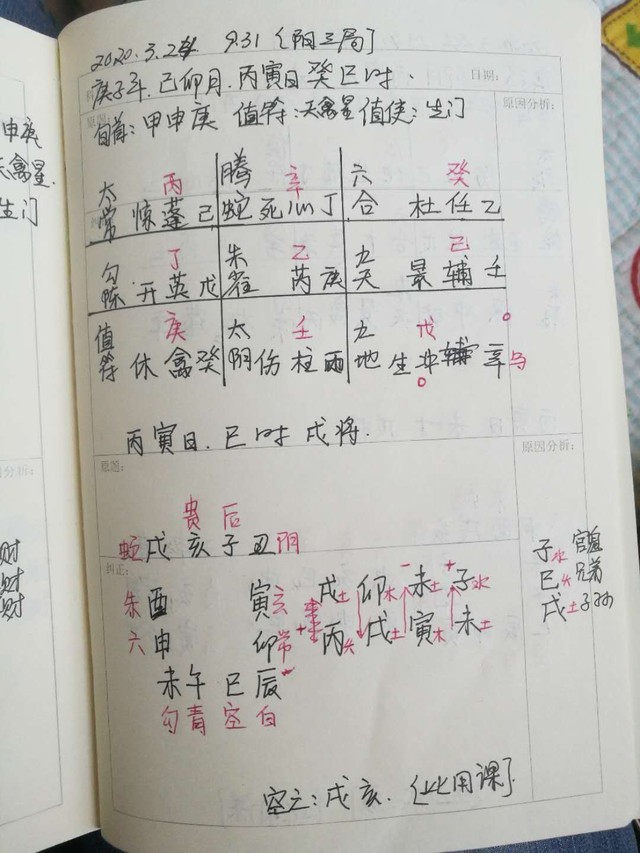 2020.3.24 9.31 [阳三局]
庚子年.己卯月.丙寅日癸巳时.
日期:
原因分析:
旬首:甲申庚 值符:天禽星 值使:生门
太常 丙 惊蓬己
腾蛇 辛 死心丁
六合 癸 杜任乙
勾陈 丁 开英戊
朱雀 乙 芮庚
九天 己 景辅壬
值符 庚 休禽癸
太阴 壬 伤柱丙
九地 戊 生冲辛马
丙寅日.巳时戌将.
原题:
原因分析:
贵 后
蛇戌亥子丑阴
纠正:
朱酉 寅玄 戌土 卯木 未土 子水
六申 卯常 丙火 戌土 寅木 未土
未午巳辰
勾青空白
子水官鬼
巳火兄弟
戌土子孙
空亡:戌亥. [比用课].
申庚
天禽星.
生门
因分析:
财
财
财